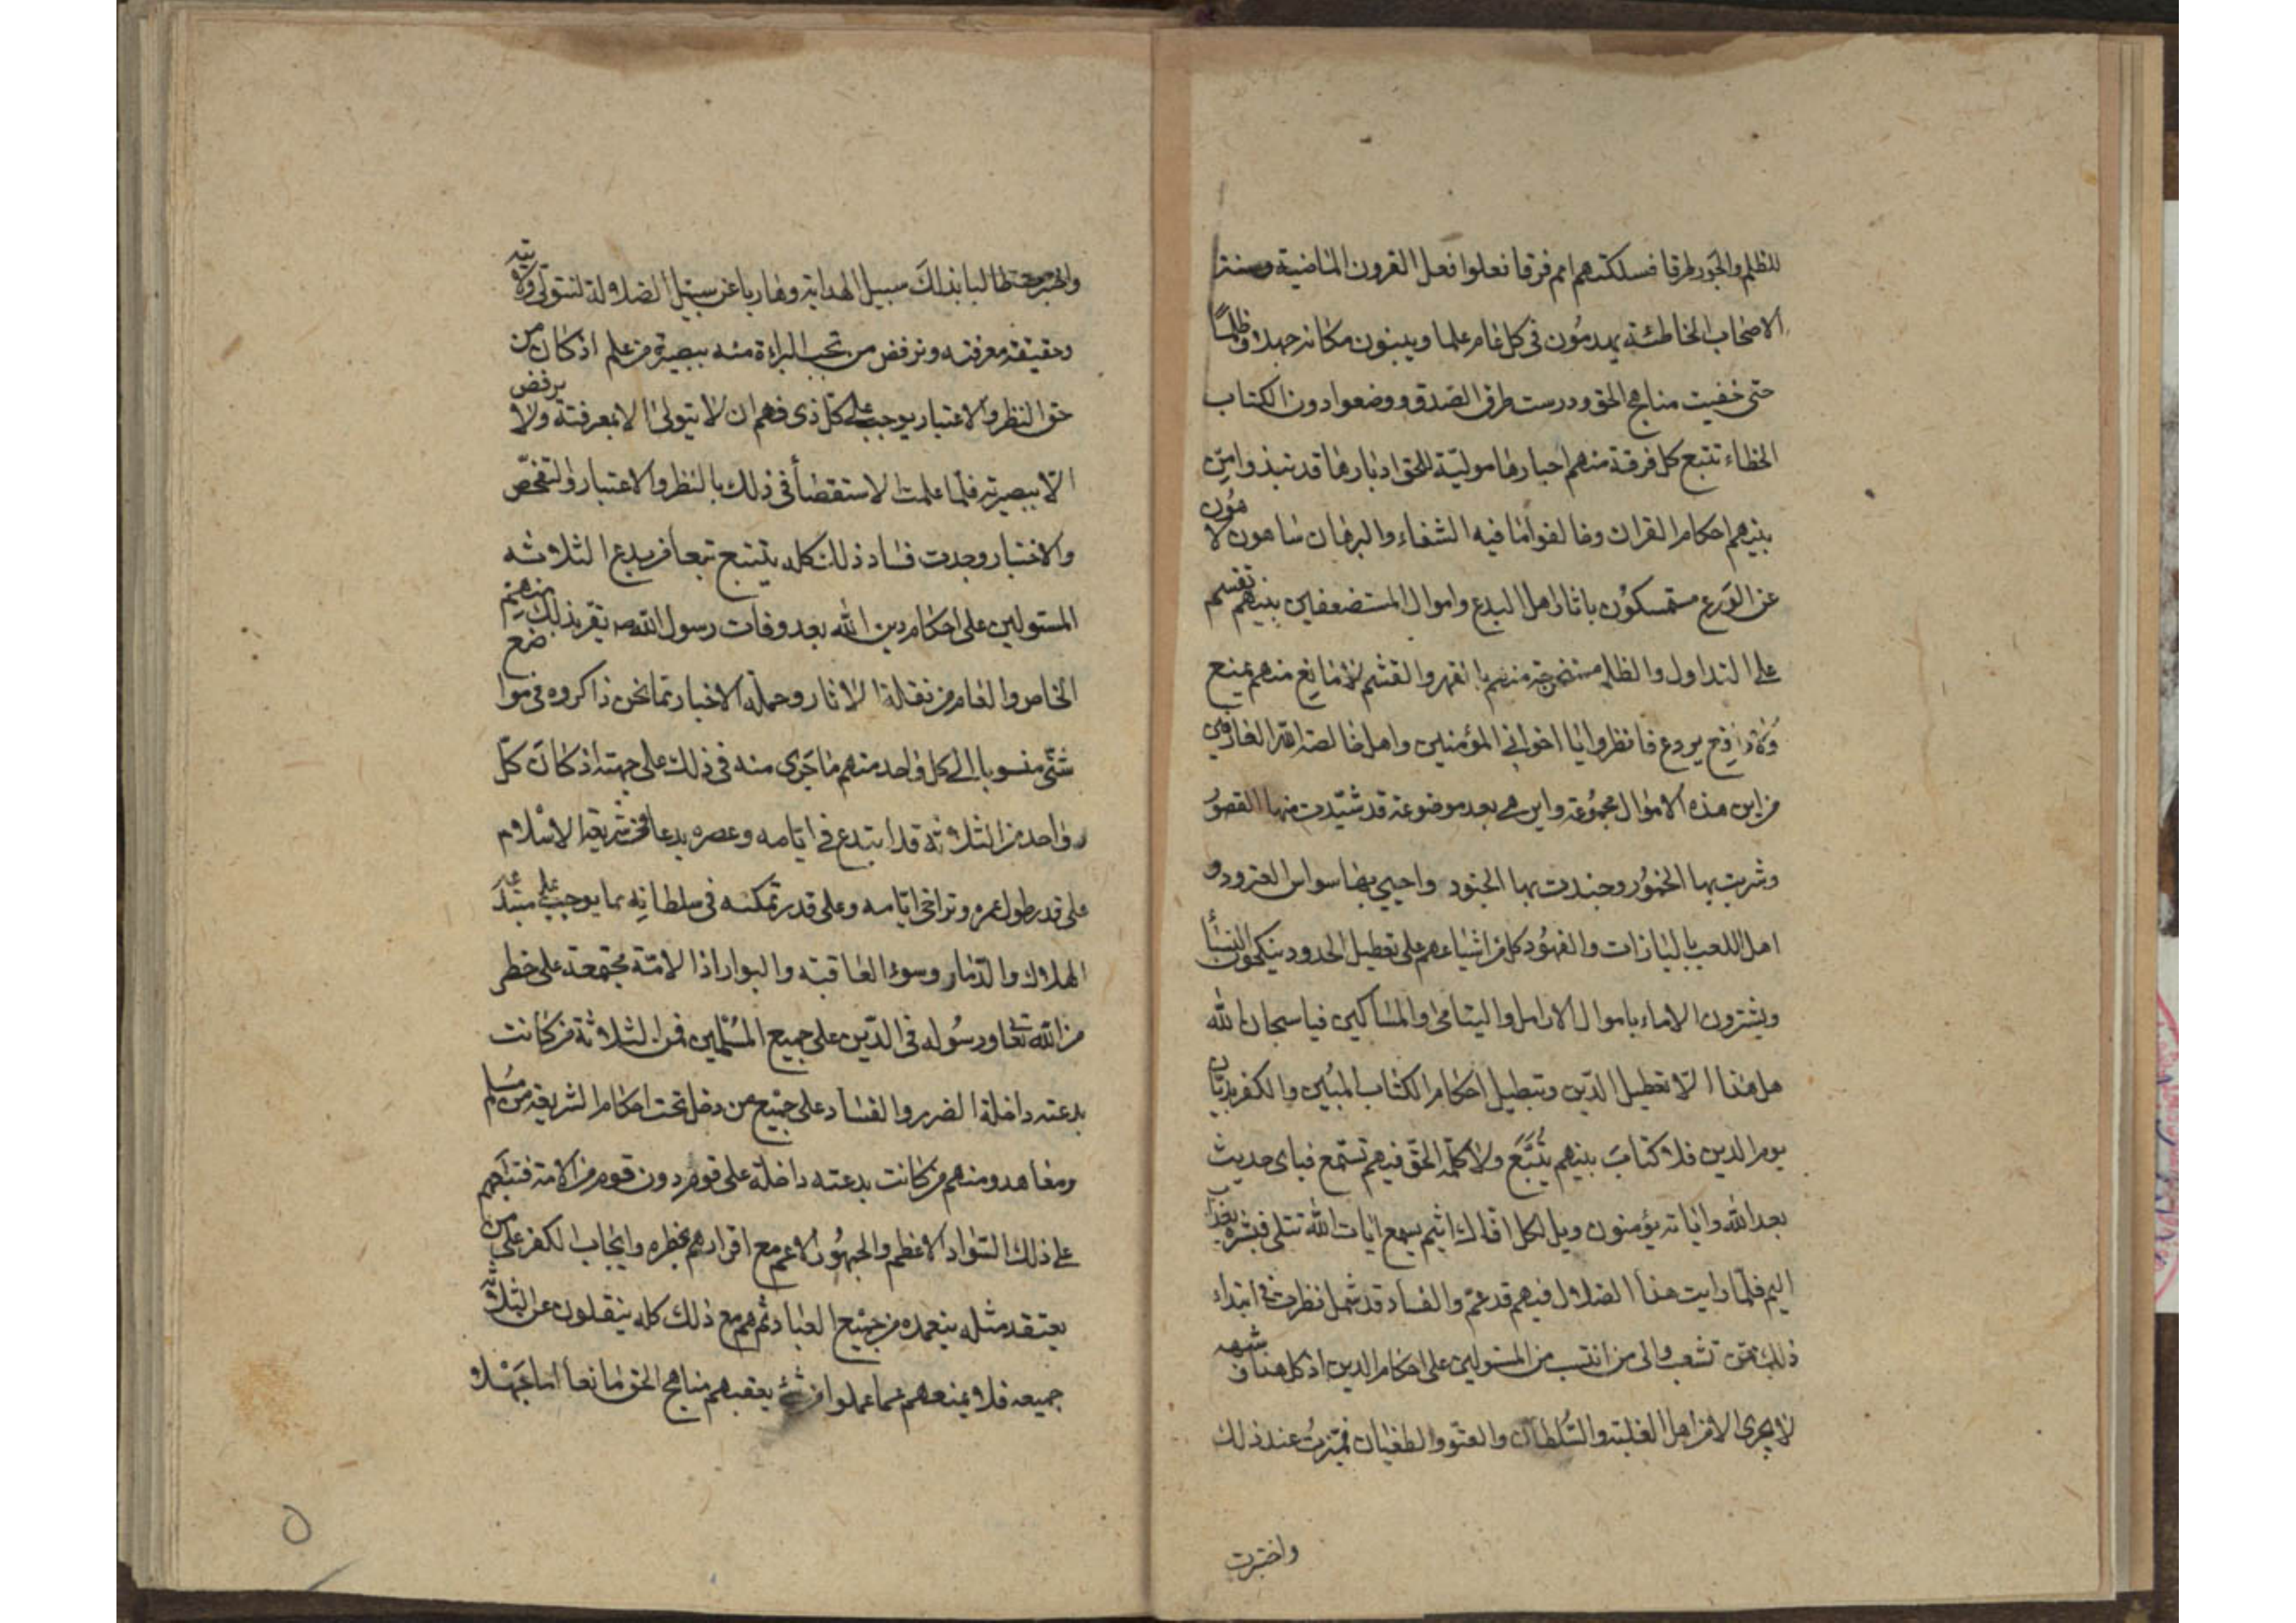 للظلم والجور طرقا فسلكتهم امم فرقا فعلوا فعل القرون الماضية وسنة
الاصحاب الخاطئة يهدمون في كل عام علما ويبنون مكانه جهلا وظلمًا
حتى خفيت مناهج الحق ودرست طرق الصدق ووضعوا دون الكتاب
الخطاء تتبع كل فرقة منهم احبارها مولية للحق ادبارها قد نبذوا من
بينهم احكام القران وخالفوا ما فيه الشفاء والبرهان ساهون لاهون
عن الورع متمسكون باثار اهل البدع واموال المستضعفين بينهم تقسم
على التداول والظلم مستخرجة منهم بالقهر والغشم لا مانع منهم يمنع
ولا دافع يردع فانظروا يا اخواني المؤمنين واهل خالصة الله العارفين
من اين هذه الاموال مجموعة واين هي بعد موضوعة قد شيّدت منها القصور
وشربت بها الخمور وجندت بها الجنود واحيي بها سواس القرود و
اهل اللعب بالبازات والفهود كل من اشياعهم على تعطيل الحدود ينكحون النسأ
ويشترون الاماء باموال الارامل واليتامى والمساكين فيا سبحان الله
هل هذا الّا تعطيل الدّين وتبطيل احكام الكتاب المبين والكفر بديّان
يوم الدين فلا كتابَ بينهم يُتَّبَع ولا كلمة الحق فيهم تستمع فباى حديث
بعد الله واياته يؤمنون ويل لكل افاك اثيم يسمع ايات الله تتلى فبشره بعذاب
اليم فلمّا رايت هذا الضلال فيهم قد عمّ والفساد قد شمل نظرت في ابتداء
ذلك ممن تشعب والى من انتسب من المستولين على احكام الدين اذ كل هذا وشبهه
لا يجرى الا من اهل الغلبة والسّلطان والعتو والطغيان فميّزت عند ذلك
واختبرت
واختبرت طالبا بذلكَ سبيل الهداية وهاربا عن سبيل الضلالة لنتولى ولايته
وحقيقة معرفته ونرفض من تجب البراءة منه ببصيرة من علم اذ كان من
حق النظر والاعتبار يوجب على كل ذى فهم ان لا يتولى الا بمعرفته ولا يرفض
الّا ببصيرته فلمّا علمت الاستقصأ في ذلك بالنظر والاعتبار والتفحّص
والاختبار وجدت فساد ذلك كله يتتبع تبعا من بدع الثلاثه
المستولين على احكام دين الله بعد وفات رسول الله ص يقر بذلك منهم
الخاص والعام من نقلة الاثار وحملة الاخبار مما نحن ذاكروه في مواضع
شتّى منسوبا الى كل واحد منهم ما جَرى منه في ذلك على جهته اذ كانَ كلّ
واحد من الثلاثة قد ابتدع في ايّامه وعصره بدعا في شريعة الاسْلام
على قدر طول عمره وتراخى ايّامه وعلى قدر تمكنه في سلطانه مما يوجب على مبتدعه
الهلاك والدّمار وسوء العاقبة والبوار اذا الامّة مجتمعة على خطر
من الله تعا ورسوله في الدّين على جميع المُسْلمين فمن الثلاثة من كانت
بدعته داخلة الضرر والفساد على جميع من دخل تحت احكام الشريعة من مسلم
ومعاهد ومنهم من كانت بدعته داخلة على قوم دون قوم من الامة فتبعهم
على ذلك السّواد الاعظم والجمهُور الاعم مع اقرارهم بخطره وايجاب الكفر على من
يعتقد مثله بتعمده من جميع العباد ثم هم مع ذلك كله ينقلون عن الثلاثة
جميعه فلا يمنعهم عما عملوا من شئ يعقبهم مناهج الحق مانعا اما جَهْلا
٥